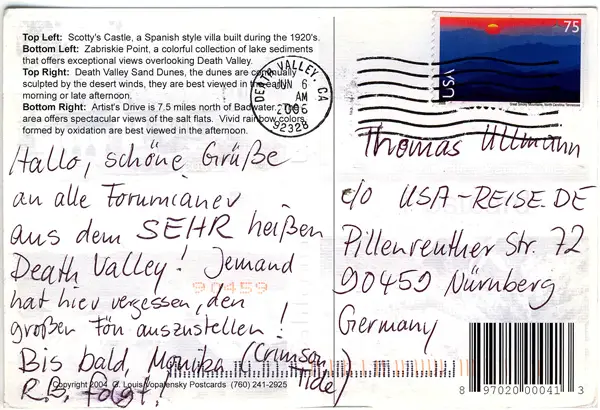 Top Left: Scotty's Castle, a Spanish style villa built during the 1920's.
Bottom Left: Zabriskie Point, a colorful collection of lake sediments
that offers exceptional views overlooking Death Valley.
Top Right: Death Valley Sand Dunes, the dunes are continually
sculpted by the desert winds, they are best viewed in the early
morning or late afternoon.
Bottom Right: Artist's Drive is 7.5 miles north of Badwater. The
area offers spectacular views of the salt flats. Vivid rainbow colors
formed by oxidation are best viewed in the afternoon.
DEATH VALLEY, CA
JUN 6
AM
2006
92328
75
USA
Great Smoky Mountains, North Carolina/Tennessee
Hallo, schöne Grüße
an alle Forumianer
aus dem SEHR heißen
Death Valley! Jemand
hat hier vergessen, den
großen Fön auszustellen!
Bis bald, Monika (Crimson
Tide)
R.B. folgt!
90459
Copyright 2004 G. Louis Vopalensky Postcards (760) 241-2925
Thomas Ullmann
c/o USA-REISE.DE
Pillenreuther Str. 72
90459 Nürnberg
Germany
8 97020 00041 3